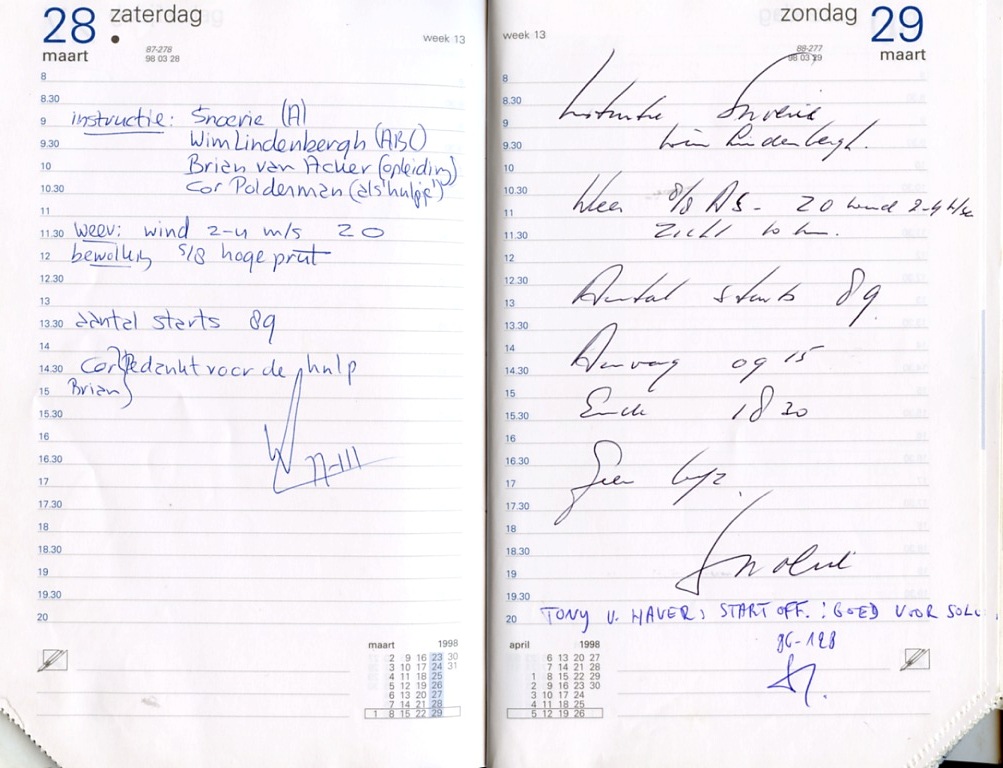 28 zaterdag
maart
87-278
98 03 28
week 13
8
8.30
9 instructie: Snoerie (A)
9.30 Wim Lindenbergh (ABC)
10 Brian van Acker (opleiding)
10.30 Cor Polderman (als 'hulpje')
11
11.30 weer: wind 2-4 m/s ZO
12 bewolking 5/8 hoge prut
12.30
13
13.30 aantal starts 89
14
14.30 Cor } Bedankt voor de hulp
15 Brian
15.30
16
16.30
17
17.30
18
18.30
19
19.30
20
maart 1998
2 9 16 23 30
3 10 17 24 31
4 11 18 25
5 12 19 26
6 13 20 27
7 14 21 28
1 8 15 22 29
zondag 29
maart
week 13
88-277
98 03 29
8
8.30
9 Instructie Snoerie
9.30 Wim Lindenbergh.
10
10.30
11 Weer 8/8 AS - ZO wind 2-4 m/sec
11.30 Zicht 10 km.
12
12.30
13 Aantal starts 89
13.30
14
14.30 Aanvang 09 15
15
15.30 Einde 18 30
16
16.30
17 Geen bijz.
17.30
18
18.30
19 Snoerie
19.30
20 TONY V. HAVER, START OFF. : GOED VOOR SOLO
96-128
april 1998
6 13 20 27
7 14 21 28
1 8 15 22 29
2 9 16 23 30
3 10 17 24
4 11 18 25
5 12 19 26